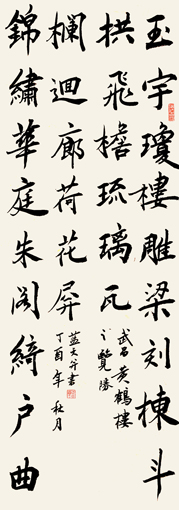 玉宇瓊樓雕梁刻棟斗
拱飛檐琉璃瓦
武昌黄鶴樓
覽勝
錦繡華庭朱阁綺户曲
欄迴廊荷花屏
丁酉年秋月
書